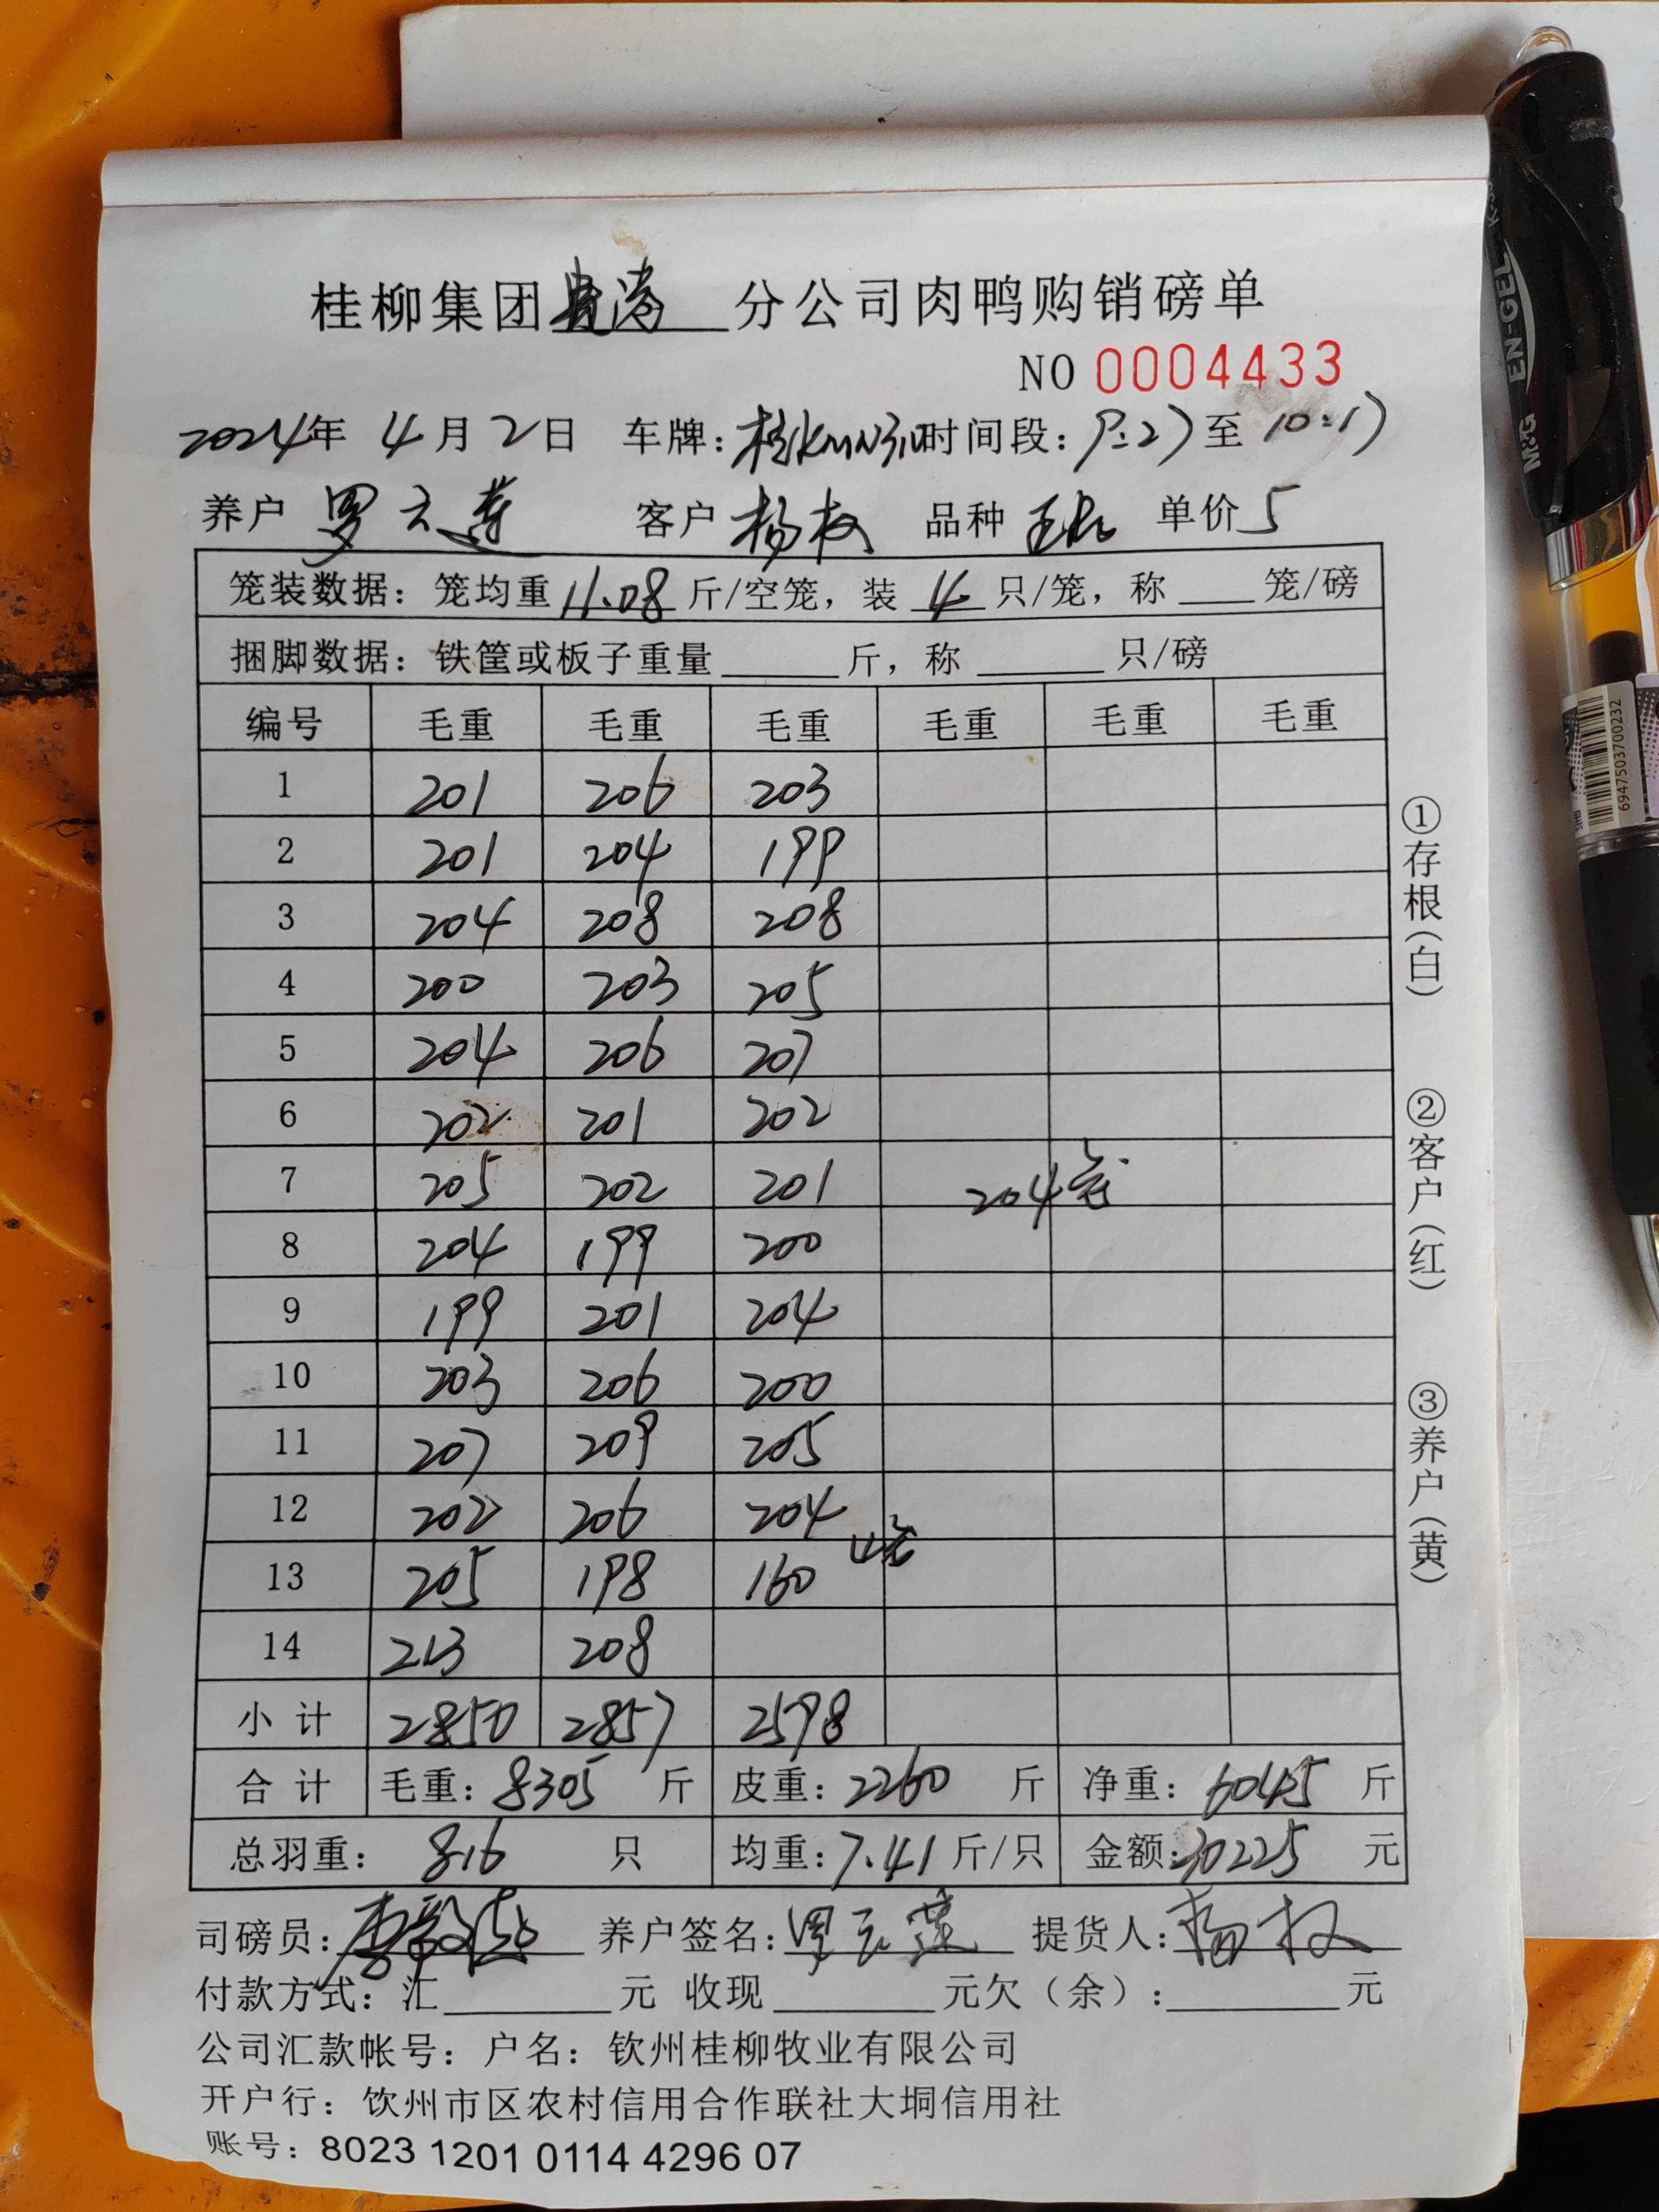 桂柳集团 分公司肉鸭购销磅单
NO 0004433
2024年 4月2日 车牌: 时间段: 9:27至 10:17
养户 罗云莲 客户 杨权 品种 单价 5
笼装数据: 笼均重 11.08 斤/空笼, 装 4 只/笼, 称 ____ 笼/磅
捆脚数据: 铁筐或板子重量 ______ 斤, 称 ______ 只/磅
编号 毛重 毛重 毛重 毛重 毛重 毛重
1 201 206 203
2 201 204 199
3 204 208 208
4 200 203 205
5 204 206 207
6 202 201 202
7 205 202 201 204笼
8 204 199 200
9 199 201 204
10 203 206 200
11 207 209 205
12 202 206 204
13 205 198 160 4笼
14 213 208
小计 2850 2857 2598
合计 毛重: 8305 斤 皮重: 2260 斤 净重: 6045 斤
总羽重: 816 只 均重: 7.41 斤/只 金额: 30225 元
司磅员: 养户签名: 罗云莲 提货人: 杨权
付款方式: 汇________元 收现________元欠(余):________元
公司汇款帐号: 户名: 钦州桂柳牧业有限公司
开户行: 饮州市区农村信用合作联社大垌信用社
账号: 8023 1201 0114 4296 07
①存根(白)
②客户(红)
③养户(黄)
M&G EN-GEL
6947503700232